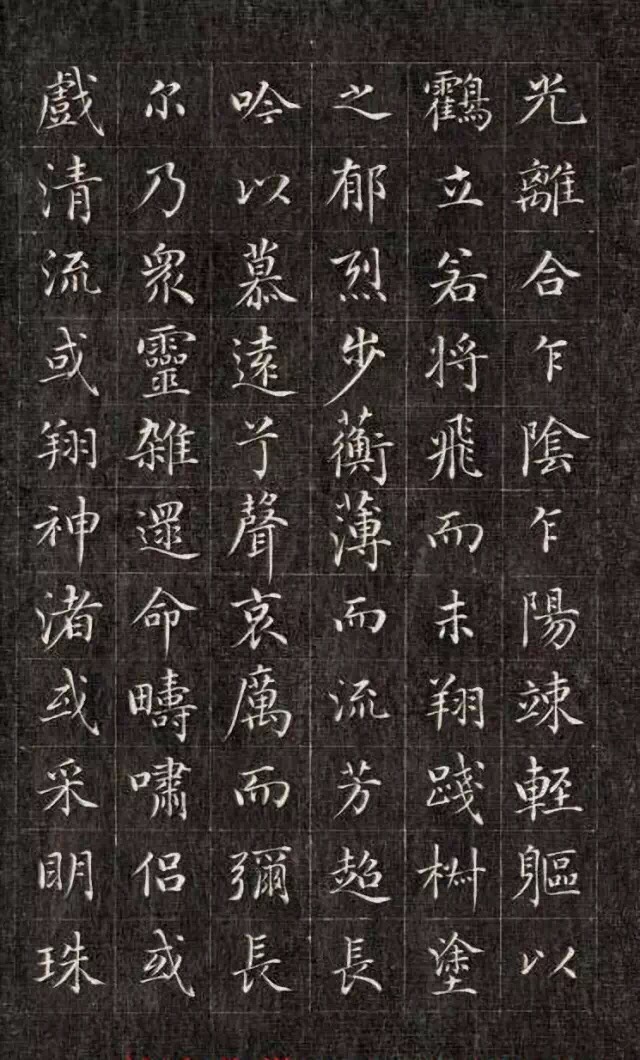 光離合乍陰乍陽竦軽軀以
鸖立若将飛而未翔踐椒塗
之郁烈步蘅薄而流芳超長
吟以慕遠兮聲哀厲而彌長
尔乃衆靈雑遝命疇嘯侣或
戲清流或翔神渚或采明珠